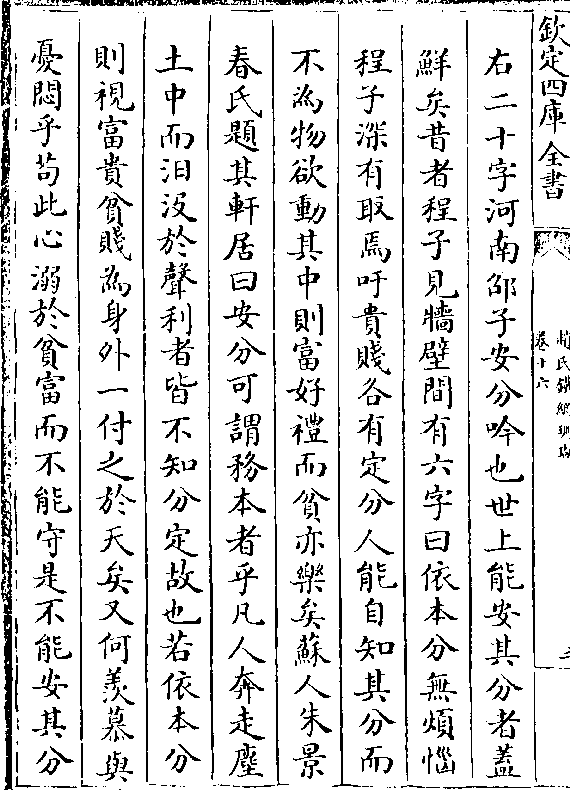 欽定四庫全書
趙氏鐵網珊瑚
卷十六
右二十字河南邵子安分吟也世上能安其分者蓋
鮮矣昔者程子見牆壁間有六字曰依本分無煩惱
程子深有取焉吁貴賤各有定分人能自知其分而
不為物欲動其中則富好禮而貧亦樂矣蘇人朱景
春氏題其軒居曰安分可謂務本者乎凡人奔走塵
土中而汩没於聲利者皆不知分定故也若依本分
則視富貴貧賤為身外一付之於天矣又何羨慕與
憂悶乎苟此心溺於貧富而不能守是不能安其分